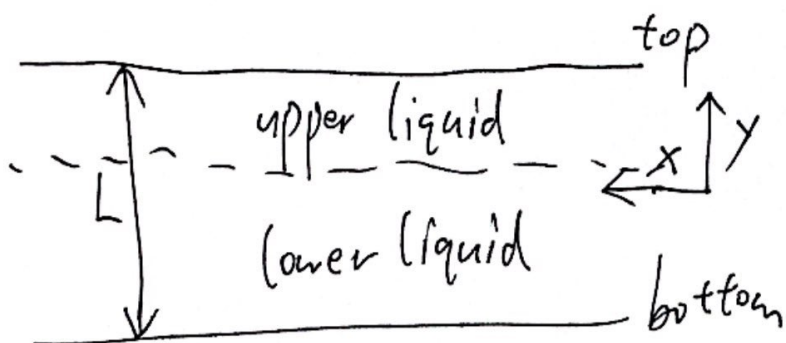 top
upper liquid
x
y
L
lower liquid
bottom